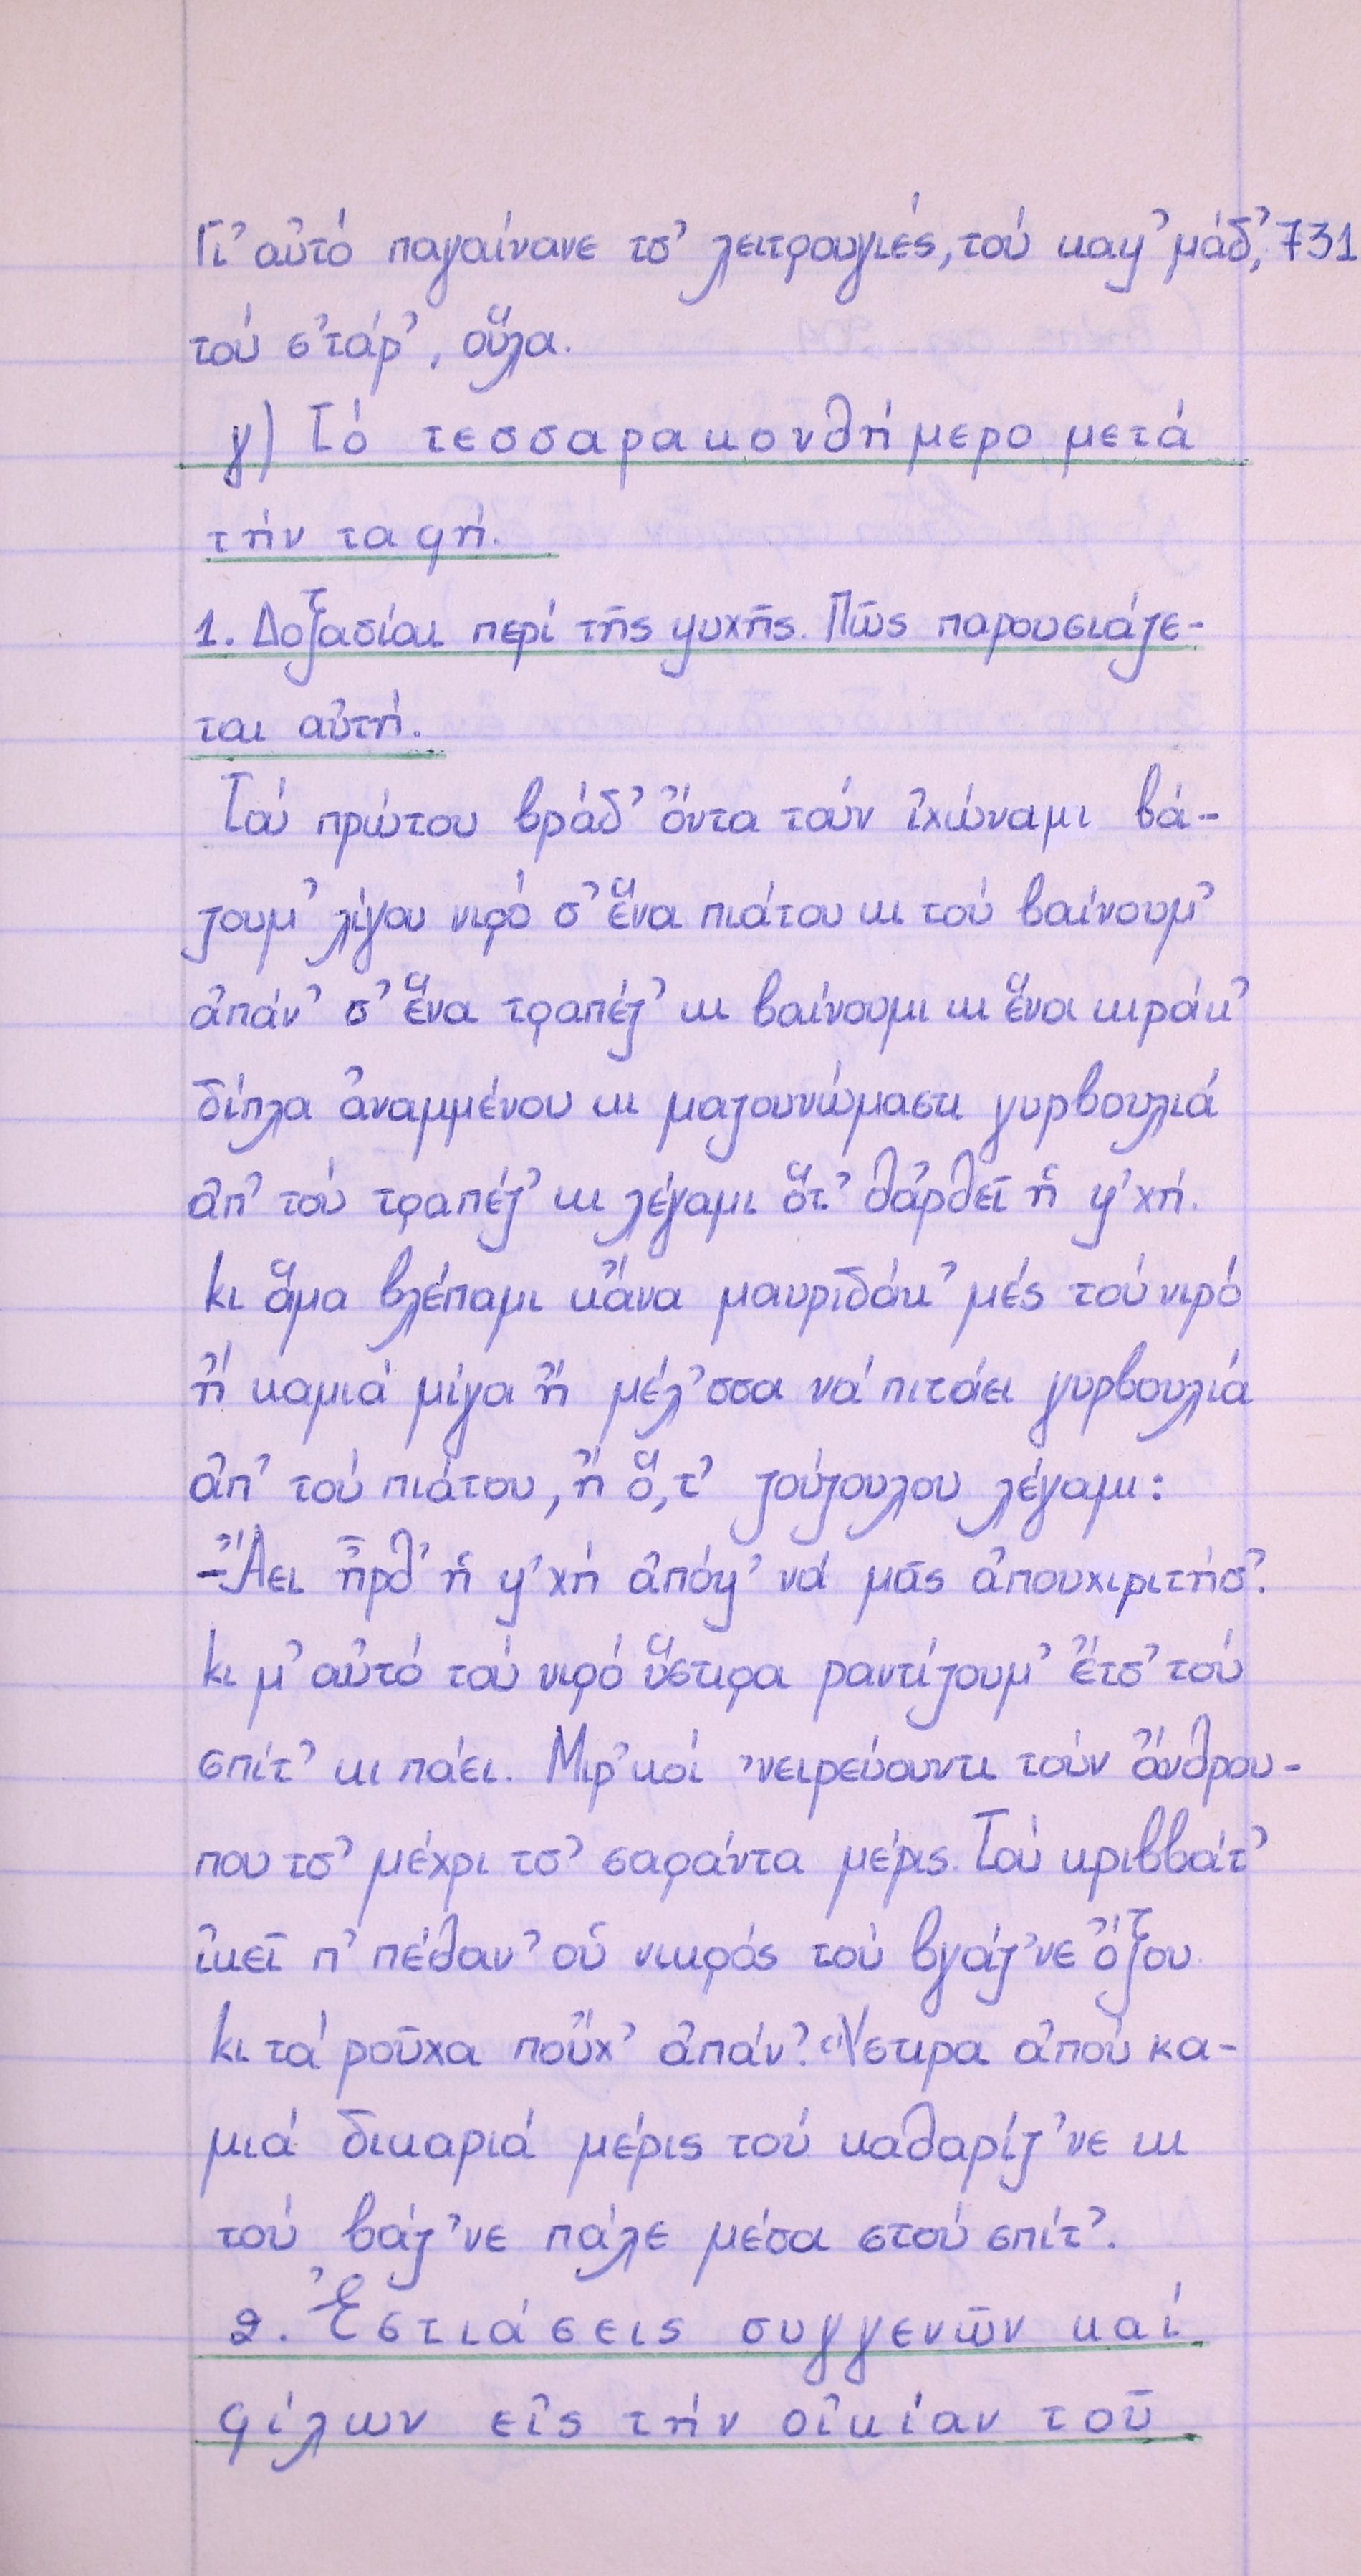 Γι᾽ αὐτό παγαίνανε τσ᾽ λειτρουγιές, τού καψ᾽ μάδ᾽, 731
τού σ᾽τάρ᾽, οὕλα.
γ) Τό τεσσαρακονθήμερο μετά
τήν ταφή.
1. Δοξασίαι περί τῆς ψυχῆς. Πῶς παρουσιάζε-
ται αὐτή.
Τού πρώτου βράδ᾽ ὄντα τούν ἰχώναμι βά-
ζουμ᾽ λίγου νιρό σ᾽ ἕνα πιάτου κι τού βαίνουμ᾽
ἀπάν᾽ σ᾽ ἕνα τραπέζ᾽ κι βαίνουμι κι ἕνα κιράκ᾽
δίπλα ἀναμμένου κι μαζουνώμαστι γυρβουλιά
ἀπ᾽ τού τραπέζ᾽ κι λέγαμι ὅτ᾽ θἀρθεῖ ἡ ψ᾽χή.
κι ἅμα βλέπαμι κἄνα μαυρῖδάκ᾽ μές τού νιρό
ἤ καμιά μίγα ἤ μέλ᾽σσα νά πιτάει γυρβουλιά
ἀπ᾽ τού πιάτου, ἤ ὅ,τ᾽ ζούζουλου λέγαμι:
-Ἄει ἦρθ᾽ ἡ ψ᾽χή ἀπόψ᾽ νά μᾶς ἀπουχιριτήσ᾽.
κι μ᾽ αὐτό τού νιρό ὕστιρα ραντίζουμ᾽ ἔτσ᾽ τού
σπίτ᾽ κι πάει. Μιρ᾽κοί ᾽νειρεύουντι τούν ἄνθρου-
που τσ᾽ μέχρι τσ᾽ σαράντα μέρις. Τού κριββάτ᾽
ἰκεῖ π᾽ πέθαν᾽ οὑ νικρός τού βγάζ᾽νε ὄξου
κι τά ροῦχα ποὔχ᾽ ἀπάν᾽. Ὕστιρα ἀπού κα-
μιά δικαριά μέρις τού καθαρίζ᾽νε κι
τού βάζ᾽νε πάλε μέσα στού σπίτ᾽.
2. Ἑστιάσεις συγγενῶν καί
φίλων εἰς τήν οἰκίαν τοῦ